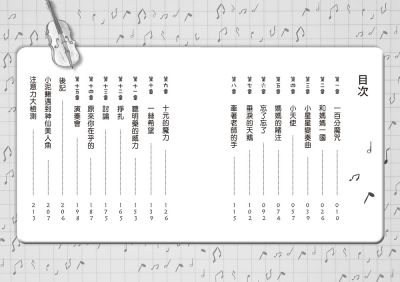 目次
第一章 一百分魔咒 010
第二章 和媽媽一國 026
第三章 小星星變奏曲 039
第四章 小天使 057
第五章 媽媽的賭注 074
第六章 忘了忘了 092
第七章 垂淚的天鵝 102
第八章 牽著老師的手 115
第九章 十元的魔力 126
第十章 一絲希望 139
第十一章 聰明藥的威力 153
第十二章 掙扎 165
第十三章 討論 175
第十四章 原來你在乎的 187
第十五章 演奏會 198
後記 206
小泥鰍遇到神仙美人魚 207
注意力大檢測 213